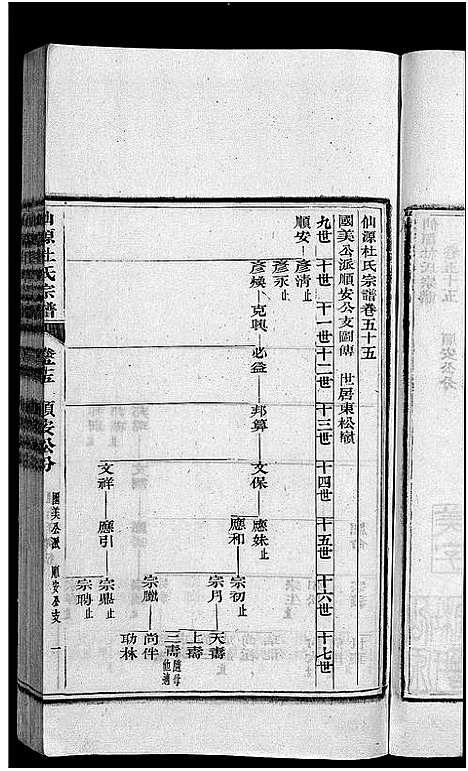 仙源杜氏宗譜卷五十五
國美公派順安公支圖傳 世居東松嶺
九世 十世 十一世 十二世 十三世 十四世 十五世 十六世 十七世
順安 彥清止
彥永止
彥煥 克興 必益 邦算 文保 應妹止
應和 宗初止
宗月 天壽
上壽
三壽隨母他適
宗臘 尚伴
功林
文祥 應引 宗鼎止
宗聘止
仙源杜氏宗譜 卷五十五 順安公分 國美公派 順安公支 一
順安公分